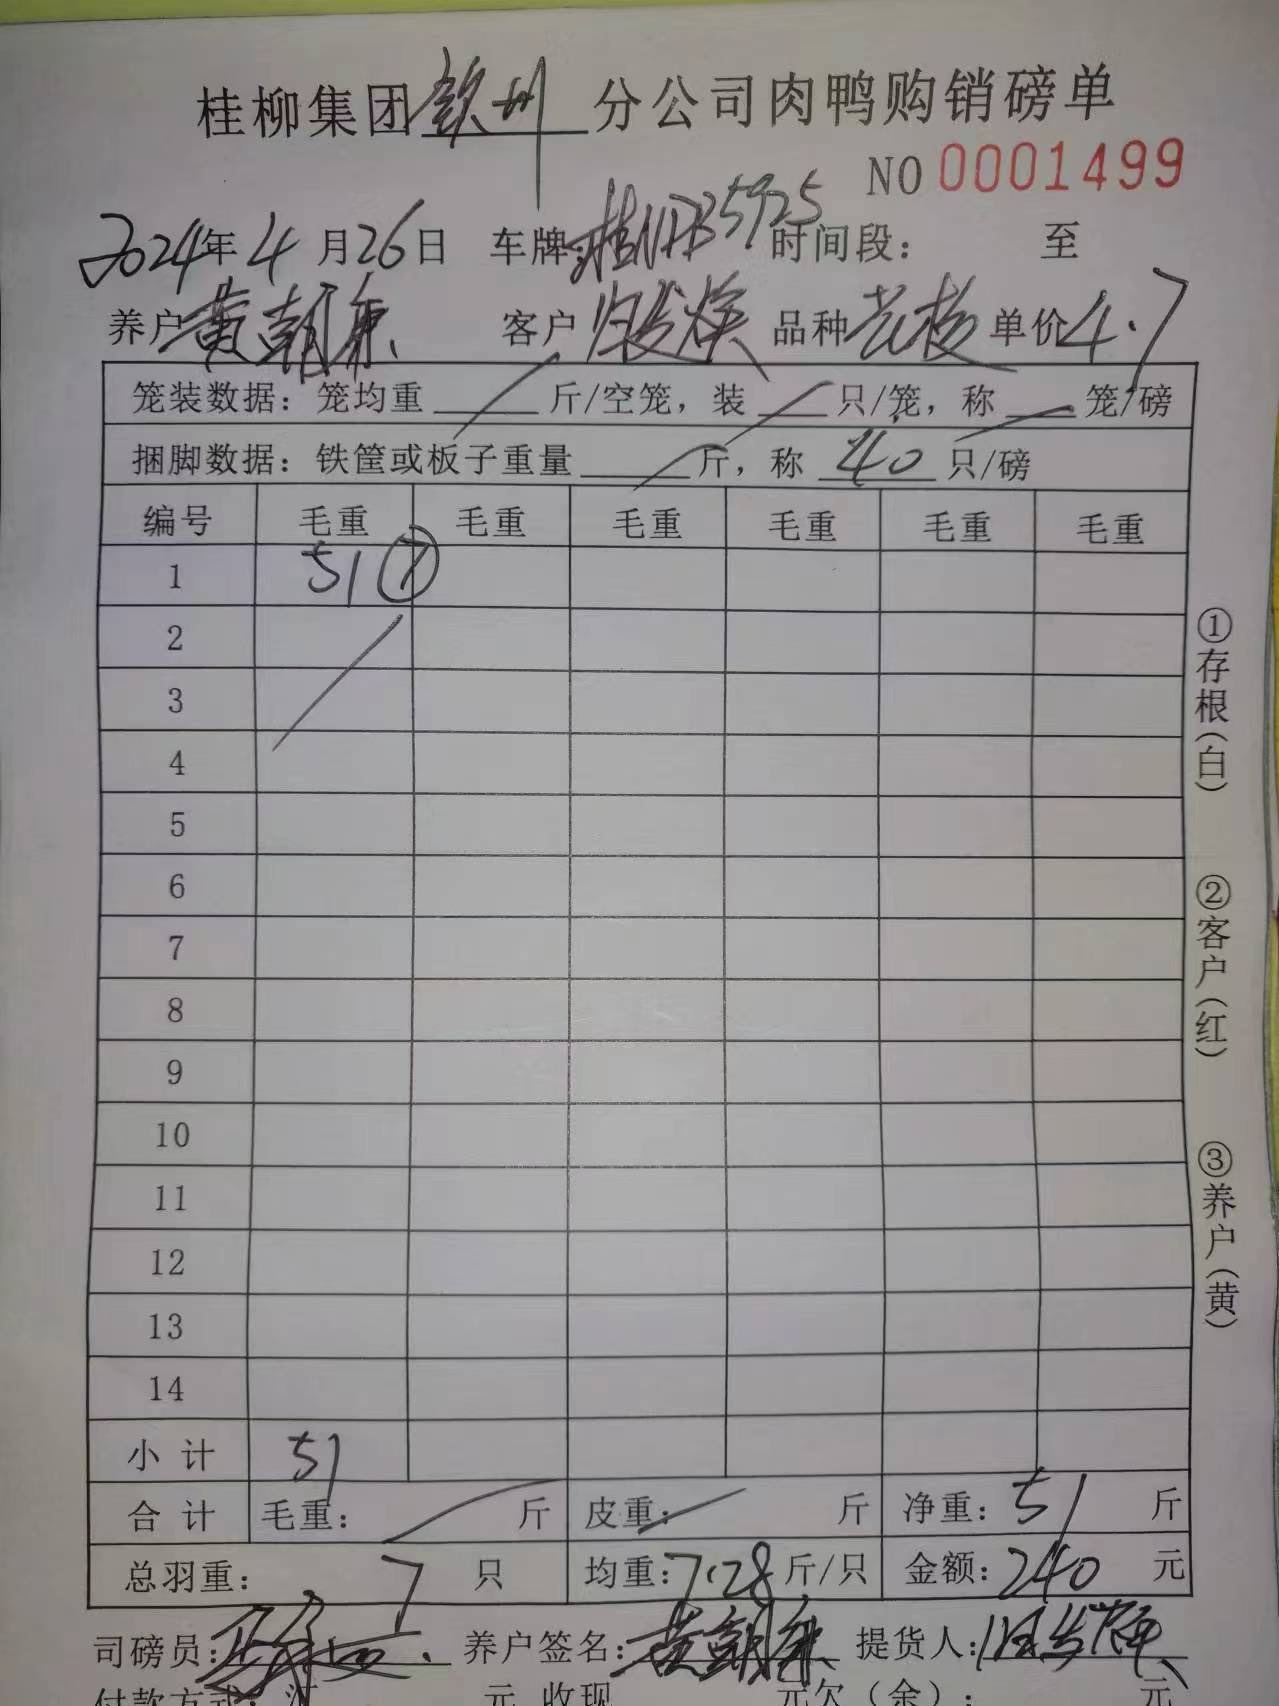 桂柳集团钦州分公司肉鸭购销磅单
NO 0001499
2024年4月26日 车牌: 时间段： 至
养户黄朝东 客户 品种 单价4.7
笼装数据：笼均重 斤/空笼，装 只/笼，称 笼/磅
捆脚数据：铁筐或板子重量 斤，称 40 只/磅
编号 毛重 毛重 毛重 毛重 毛重 毛重
1 51 ⑦
2
3
4
5
6
7
8
9
10
11
12
13
14
小计 51
合计 毛重： 斤 皮重： 斤 净重：51 斤
总羽重： 7 只 均重：7.28 斤/只 金额：240 元
司磅员: 养户签名：黄朝东 提货人：
付款方式：汇 元 收现 元欠（余）： 元
①存根(白)
②客户(红)
③养户(黄)